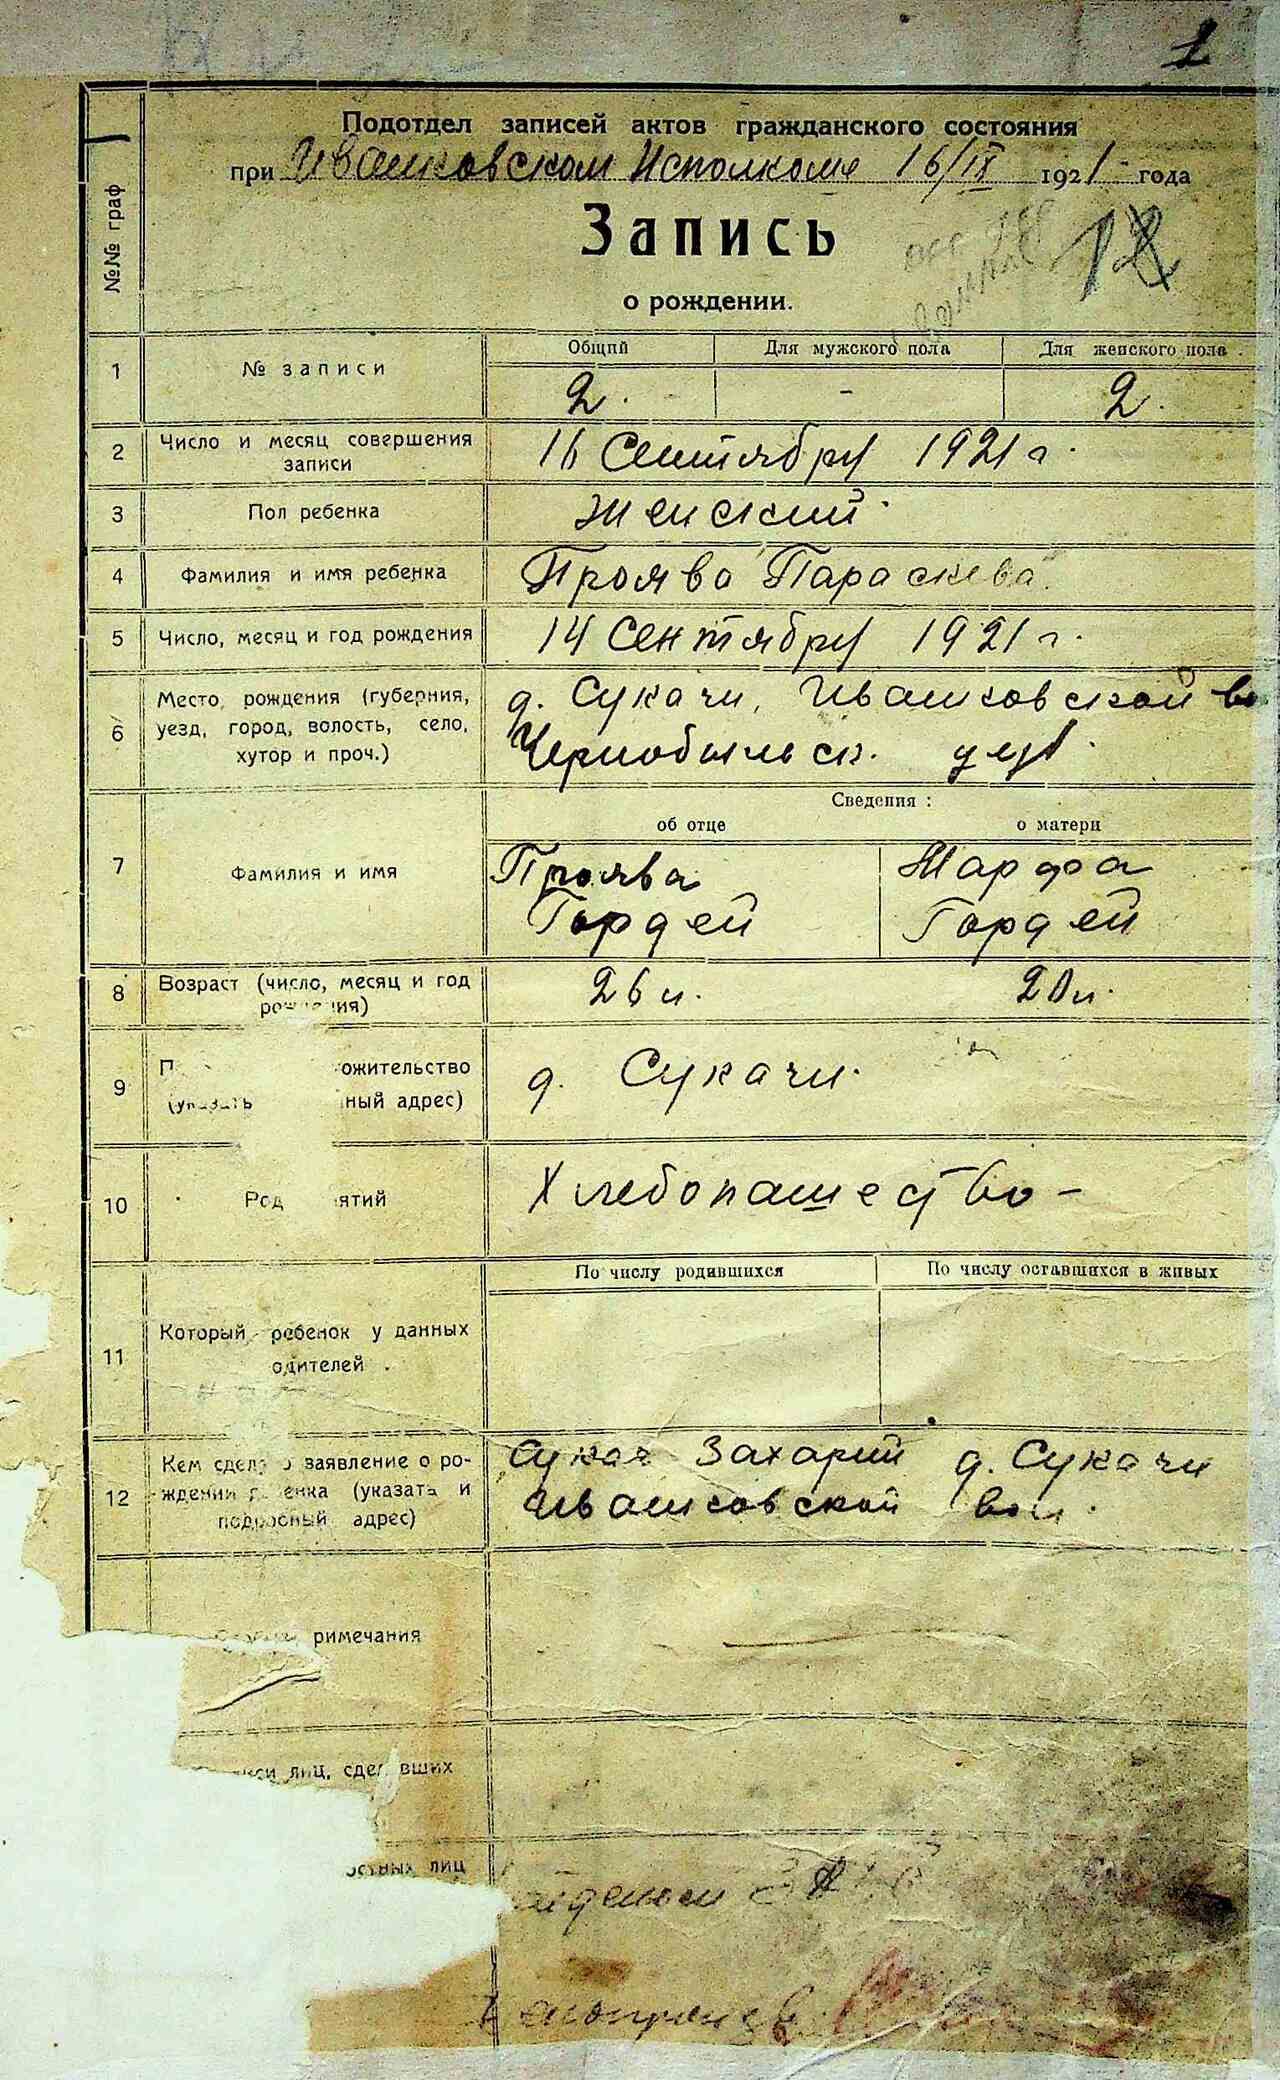 1
Подотдел записей актов гражданского состояния
при Иванковском Исполкоме 16/IX 1921 года
Запись
о рождении.
№№ граф
Общий Для мужского пола Для женского пола
1 № записи 2. - 2.
2 Число и месяц совершения записи 16 Сентября 1921 г.
3 Пол ребенка Женский.
4 Фамилия и имя ребенка Проява Параскева.
5 Число, месяц и год рождения 14 Сентября 1921 г.
6 Место рождения (губерния, уезд, город, волость, село, хутор и проч.)
д. Сукачи, Иванковской во
Чернобыльск. уезд.
Сведения:
об отце о матери
7 Фамилия и имя
Проява Марфа
Гордей Гордей
8 Возраст (число, месяц и год рождения) 26 л. 20 л.
9 ожительство (указать ный адрес) д. Сукачи.
10 Род ятий Хлебопашество -
По числу родившихся По числу оставшихся в живых
11 Который ребенок у данных одителей.
12 Кем сдел о заявление о рождении ребенка (указать и подробный адрес)
Сукач Захарий д. Сукачи
Иванковской вол.
римечания
иси лиц, сделавших
остных лиц